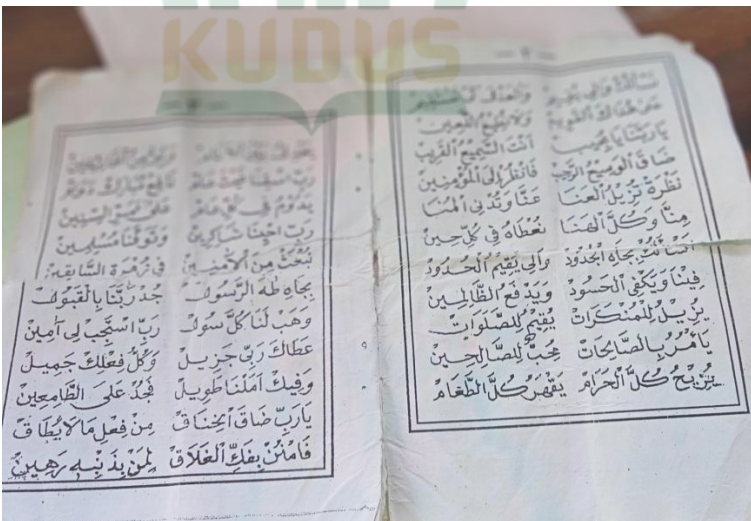 KUDUS
يَارَبَّنَا يَا مُجِيبْ أَنْتَ السَّمِيعُ الْقَرِيبْ
ضَاقَ الْوَسِيعُ الرَّحِيبْ فَانْظُرْ إِلَى الْمُؤْمِنِينْ
نَظْرَةً تُزِيلُ الْعَنَا عَنَّا وَتُدْنِي الْمُنَا
مِنَّا وَكُلَّ الْهَنَا نُعْطَاهُ فِي كُلِّ حِينْ
بِجَاهِ الْجُدُودْ وَالِي يُقِيمُ الْحُدُودْ
فِينَا وَيَكْفِي الْحَسُودْ وَيَدْفَعُ الظَّالِمِينْ
يُزِيلُ لِلْمُنْكَرَاتْ يُقِيمُ لِلصَّلَوَاتْ
يَأْمُرُ بِالصَّالِحَاتْ مُحِبٌّ لِلصَّالِحِينْ
يُزِيحُ كُلَّ الْحَرَامْ يَقْهَرُ كُلَّ الطَّغَامْ
رَبِّ اسْقِنَا غَيْثَ عَامْ نَافِعْ مُبَارَكْ دَوَامْ
يَدُومُ فِي كُلِّ عَامْ عَلَى مَمَرِّ السِّنِينْ
رَبِّ احْيِنَا شَاكِرِينْ وَتَوَفَّنَا مُسْلِمِينْ
نُبْعَثُ مِنَ الْآمِنِينْ فِي زُمْرَةِ السَّابِقِينْ
بِجَاهِ طٰهَ الرَّسُولْ جُدْ رَبَّنَا بِالْقَبُولْ
وَهَبْ لَنَا كُلَّ سُولْ رَبِّ اسْتَجِبْ لِي آمِينْ
عَطَاكَ رَبِّي جَزِيلْ وَكُلُّ فِعْلِكَ جَمِيلْ
وَفِيكَ أَمَلْنَا طَوِيلْ فَجُدْ عَلَى الطَّامِعِينْ
يَارَبِّ ضَاقَ الْخِنَاقْ مِنْ فِعْلِ مَا لَا يُطَاقْ
فَامْنُنْ بِفَكِّ الْغَلَاقْ لِمَنْ بِذَنْبِهِ رَهِينْ